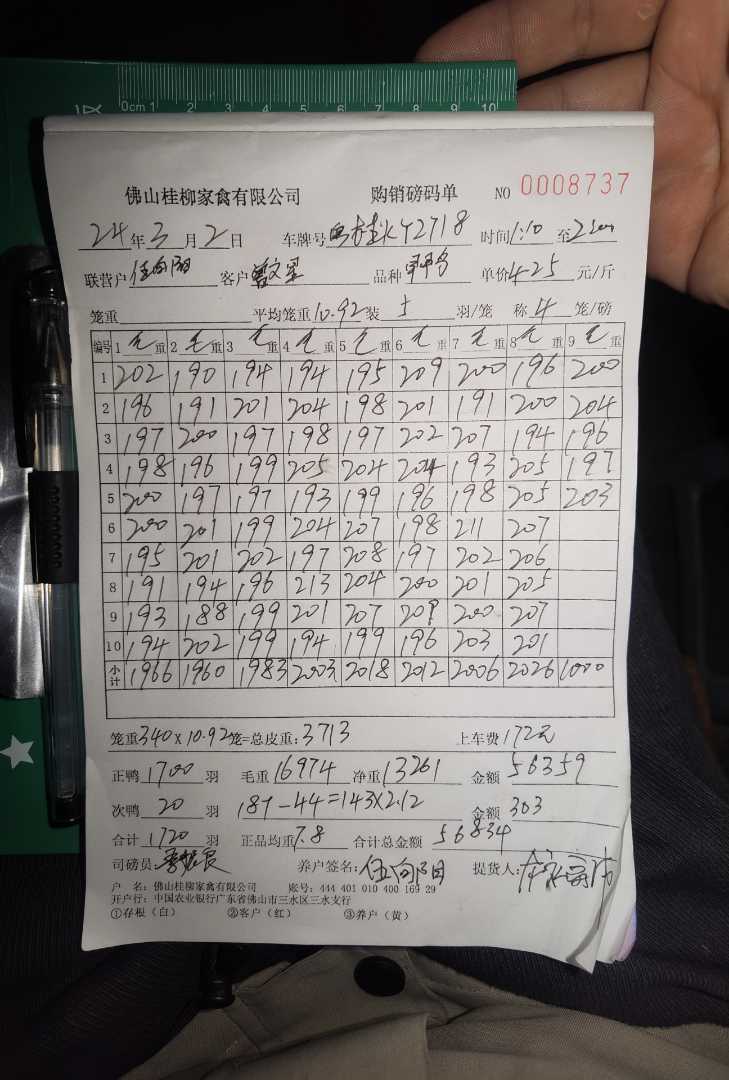 0cm 1 2 3 4 5 6 7 8 9 10
佛山桂柳家禽有限公司 购销磅码单 NO 0008737
24年3月2日 车牌号 Y2718 时间1:10至2
联营户伍向阳 客户曾文星 品种 单价4.25元/斤
笼重 平均笼重10.92装5羽/笼 称4笼/磅
编号 1毛重 2毛重 3毛重 4毛重 5毛重 6毛重 7毛重 8毛重 9毛重
1 202 190 194 194 195 209 200 196 200
2 196 191 201 204 198 201 191 200 204
3 197 200 197 198 197 202 207 194 196
4 198 196 199 205 204 204 193 205 197
5 200 197 197 193 199 196 198 205 203
6 200 201 199 204 207 198 211 207
7 195 201 202 197 208 197 202 206
8 191 194 196 213 204 200 201 205
9 193 188 199 201 207 209 200 207
10 194 202 199 194 199 196 203 201
小计 1966 1960 1983 2003 2018 2012 2006 2026 1000
笼重340×10.92笼=总皮重:3713 上车费172元
正鸭1700羽 毛重16974 净重13261 金额56359
次鸭20羽 187-44=143×2.12 金额303
合计1720羽 正品均重7.8 合计总金额56834
司磅员: 养户签名:伍向阳 提货人:
户 名:佛山桂柳家禽有限公司 账号:444 401 010 400 169 29
开户行:中国农业银行广东省佛山市三水区三水支行
①存根(白) ②客户(红) ③养户(黄)